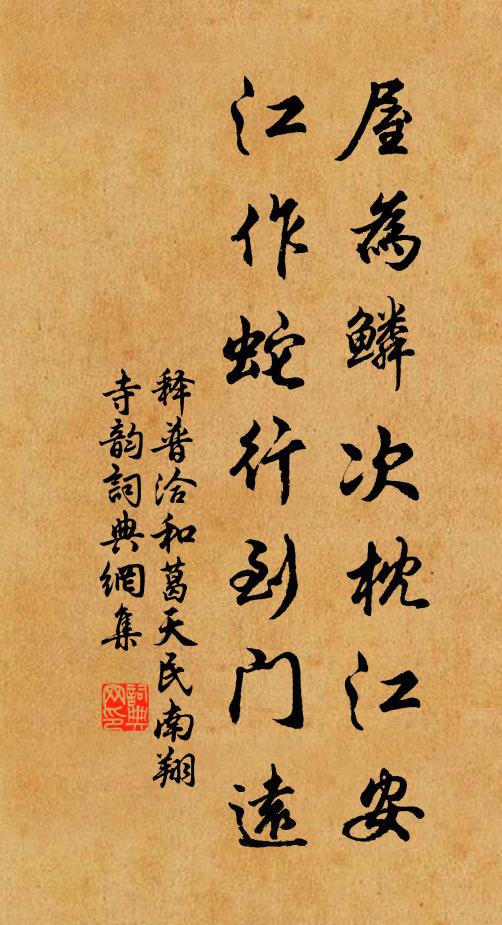 屋為鱗次枕江安
江作蛇行到門遠
释普洽和葛天民南翔
寺韵詞典網集
詞典
网印